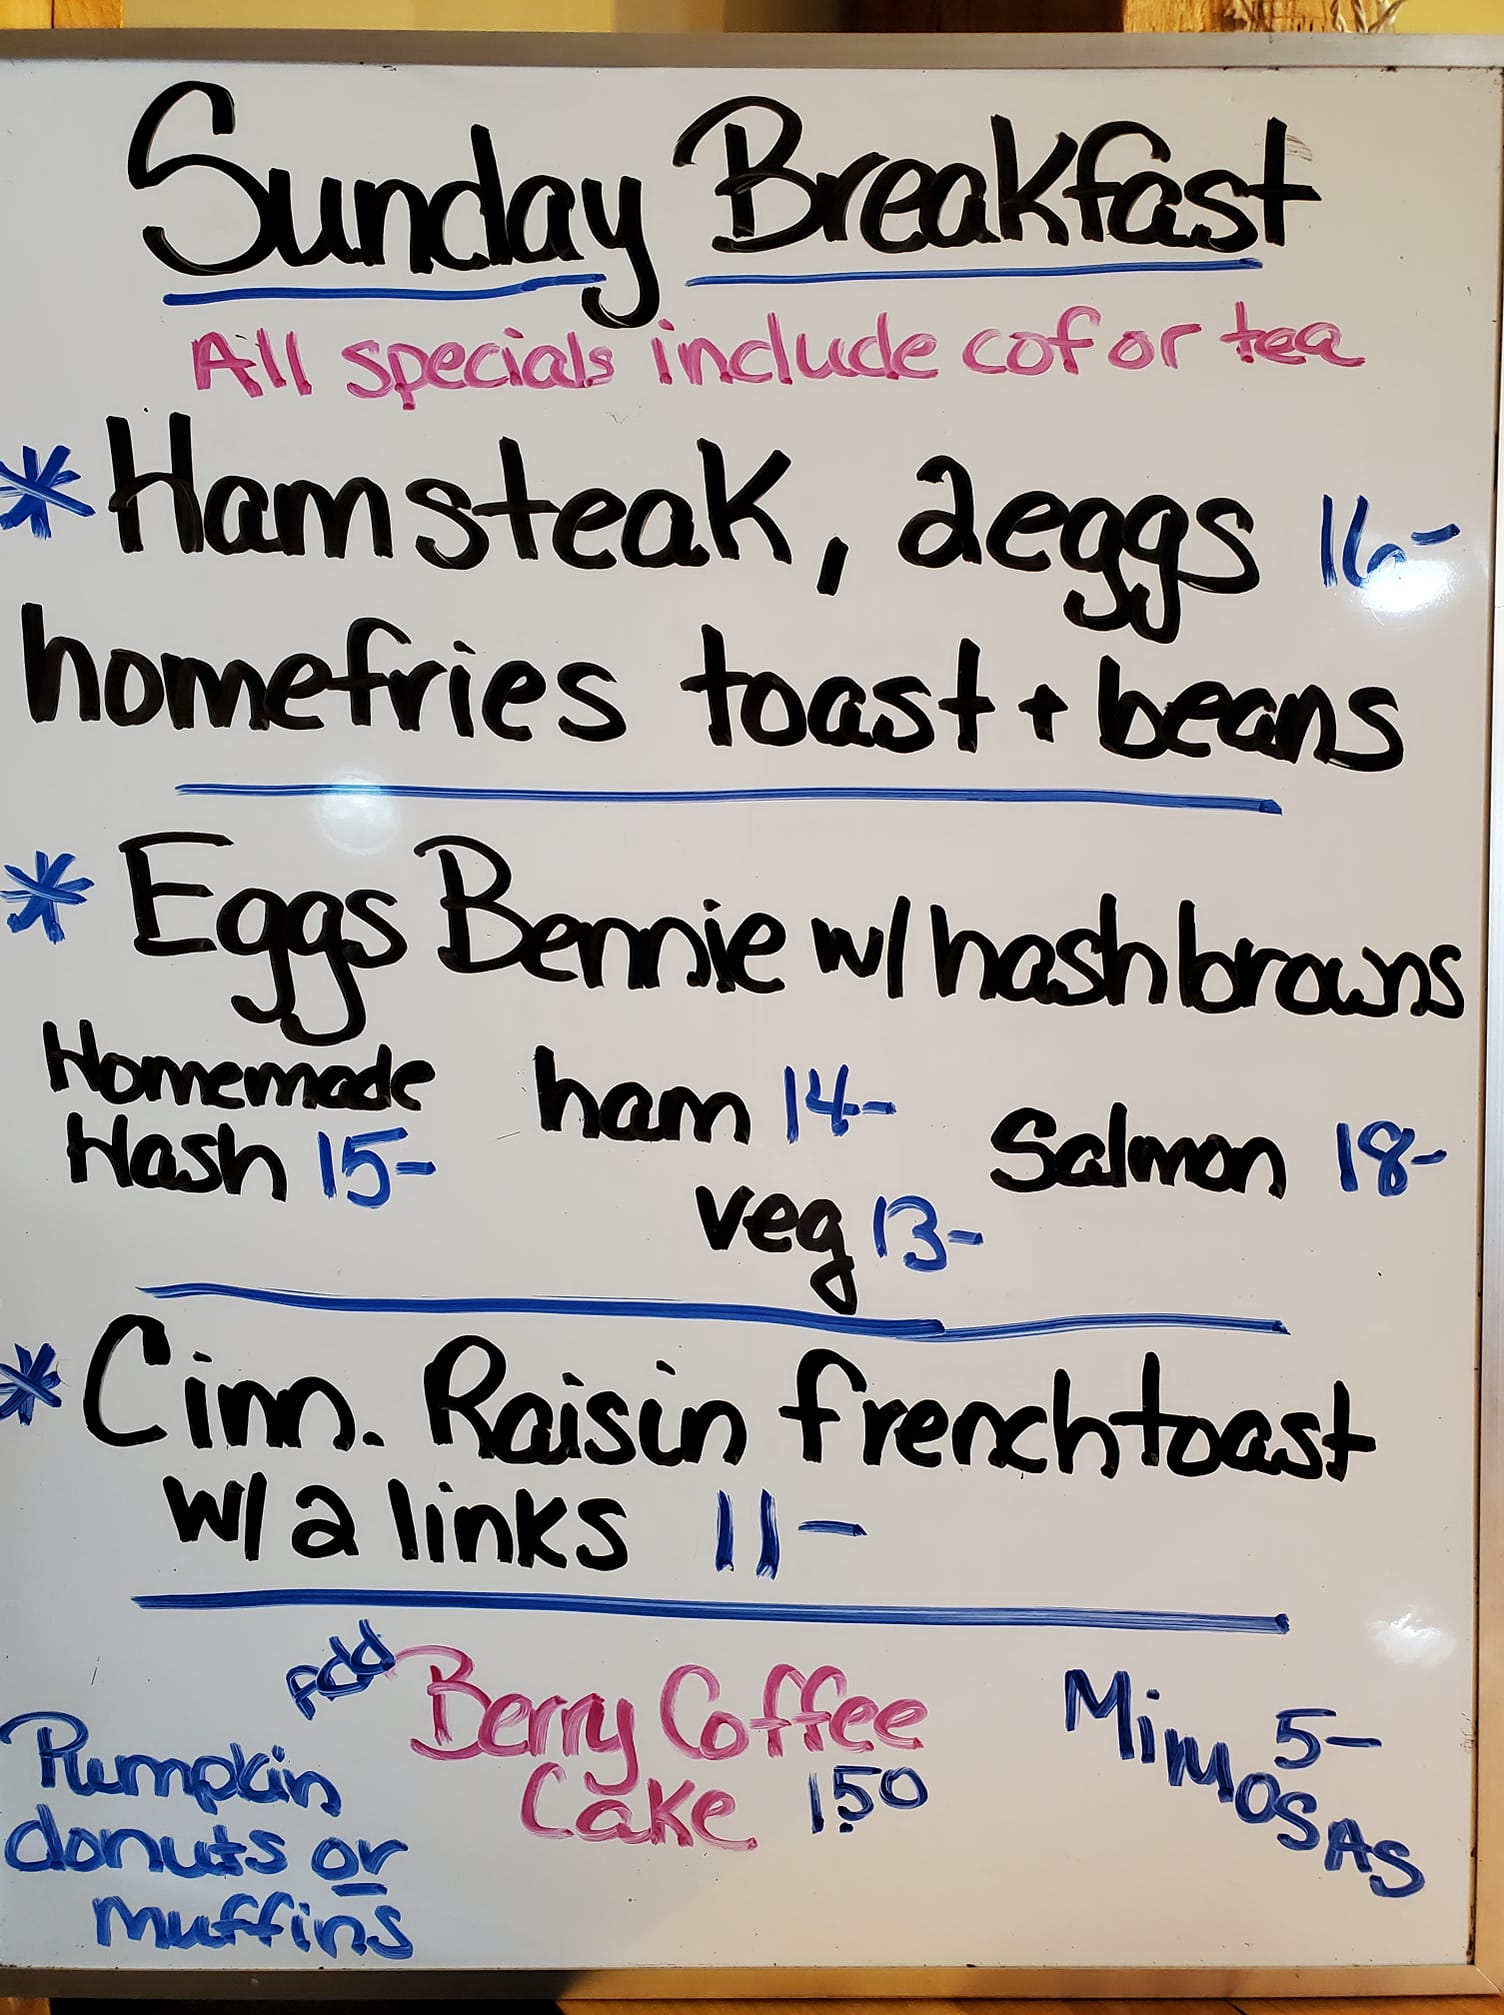 Sunday Breakfast
All specials include cof or tea
* Ham steak, 2 eggs 16-
homefries toast + beans
* Eggs Bennie w/ hashbrowns
Homemade
Hash 15-
ham 14-
veg 13-
Salmon 18-
* Cinn. Raisin frenchtoast
w/ 2 links 11-
Add
Berry Coffee
Cake 1.50
Pumpkin
donuts or
muffins
Mimosas
5-